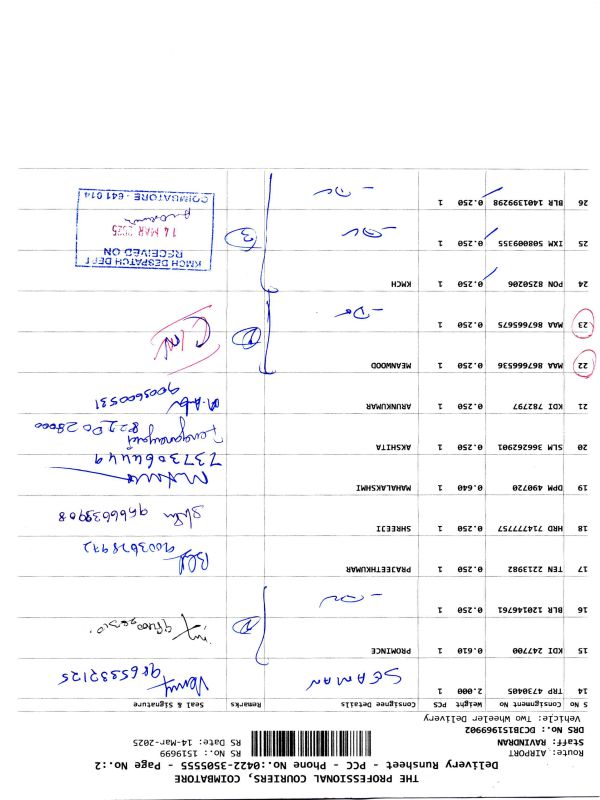 THE PROFESSIONAL COURIERS, COIMBATORE
Delivery Runsheet - PCC - Phone No.:0422-3505555 - Page No.:2
Route: AIRPORT RS No.: 1519699
Staff: RAVINDRAN RS Date: 14-Mar-2025
DRS No.: DCJB1519699O2
Vehicle: Two Wheeler Delivery
S No Consignment No Weight PCS Consignee Details Remarks Seal & Signature
14 TRP 4730404 2.000 1 SEAMAN 9865332125
15 KDI 247700 0.610 1 PROMINCE 2
16 BLR 120146761 0.250 1 - Do
17 TEN 2213982 0.250 1 PRAJEETHKUMAR 9003678972
18 HRD 71477757 0.250 1 SHREEJI 9666638908
19 DPM 490720 0.640 1 MAHALAKSHMI
7373064449
20 SLM 366262901 0.250 1 AKSHITA
21 KDI 782797 0.250 1 ARUNKUMAR
9005600531
22 MAA 867666536 0.250 1 MEANWOOD 2
23 MAA 867665675 0.250 1 - Do
24 PON 8250206 0.250 1 KMCH
25 IXM 508009355 0.250 1 - Do 3
KMCH DESPATCH DEPT
RECEIVED ON
14 MAR 2025
COIMBATORE - 641 014
26 BLR 1401399298 0.250 1 - Do